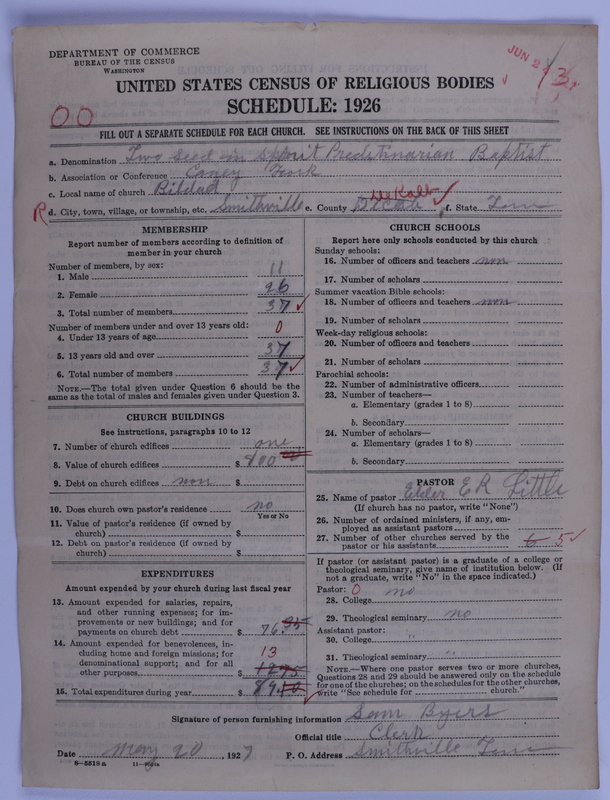 DEPARTMENT OF COMMERCE
BUREAU OF THE CENSUS
WASHINGTON
JUN 2
13
UNITED STATES CENSUS OF RELIGIOUS BODIES
SCHEDULE: 1926
00
FILL OUT A SEPARATE SCHEDULE FOR EACH CHURCH. SEE INSTRUCTIONS ON THE BACK OF THIS SHEET
a. Denomination Two seed in spirit Predestinarian Baptist
b. Association or Conference Caney Fork
c. Local name of church Bildad
R d. City, town, village, or township, etc. Smithville e. County DeKalb f. State Tenn
MEMBERSHIP
Report number of members according to definition of
member in your church
Number of members, by sex:
1. Male 11
2. Female 26
3. Total number of members 37
Number of members under and over 13 years old:
4. Under 13 years of age 0
5. 13 years old and over 37
6. Total number of members 37
NOTE.—The total given under Question 6 should be
same as the total of males and females given under Question 3.
CHURCH BUILDINGS
See instructions, paragraphs 10 to 12
7. Number of church edifices one
8. Value of church edifices $ 800
9. Debt on church edifices non $
10. Does church own pastor's residence no
Yes or No
11. Value of pastor's residence (if owned by
church) $
12. Debt on pastor's residence (if owned by
church) $
EXPENDITURES
Amount expended by your church during last fiscal year
13. Amount expended for salaries, repairs,
and other running expenses; for im-
provements or new buildings; and for
payments on church debt $ 76.35
14. Amount expended for benevolences, in-
cluding home and foreign missions; for
denominational support; and for all
other purposes $ 13
12.75
15. Total expenditures during year $ 89.10
CHURCH SCHOOLS
Report here only schools conducted by this church
Sunday schools:
16. Number of officers and teachers non
17. Number of scholars
Summer vacation Bible schools:
18. Number of officers and teachers non
19. Number of scholars
Week-day religious schools:
20. Number of officers and teachers
21. Number of scholars
Parochial schools:
22. Number of administrative officers
23. Number of teachers—
a. Elementary (grades 1 to 8)
b. Secondary
24. Number of scholars—
a. Elementary (grades 1 to 8)
b. Secondary
PASTOR
25. Name of pastor Elder E R Little
(If church has no pastor, write "None")
26. Number of ordained ministers, if any, em-
ployed as assistant pastors
27. Number of other churches served by the
pastor or his assistants 6 5
If pastor (or assistant pastor) is a graduate of a college or
theological seminary, give name of institution below. (If
not a graduate, write "No" in the space indicated.)
Pastor: 0
28. College no
29. Theological seminary no
Assistant pastor:
30. College "
31. Theological seminary "
NOTE.—Where one pastor serves two or more churches,
Questions 28 and 29 should be answered only on the schedule
for one of the churches; on the schedules for the other churches,
write "See schedule for church."
Signature of person furnishing information Sam Byers
Official title Clerk
Date May 20, 1927 P. O. Address Smithville Tenn
8-5518 a